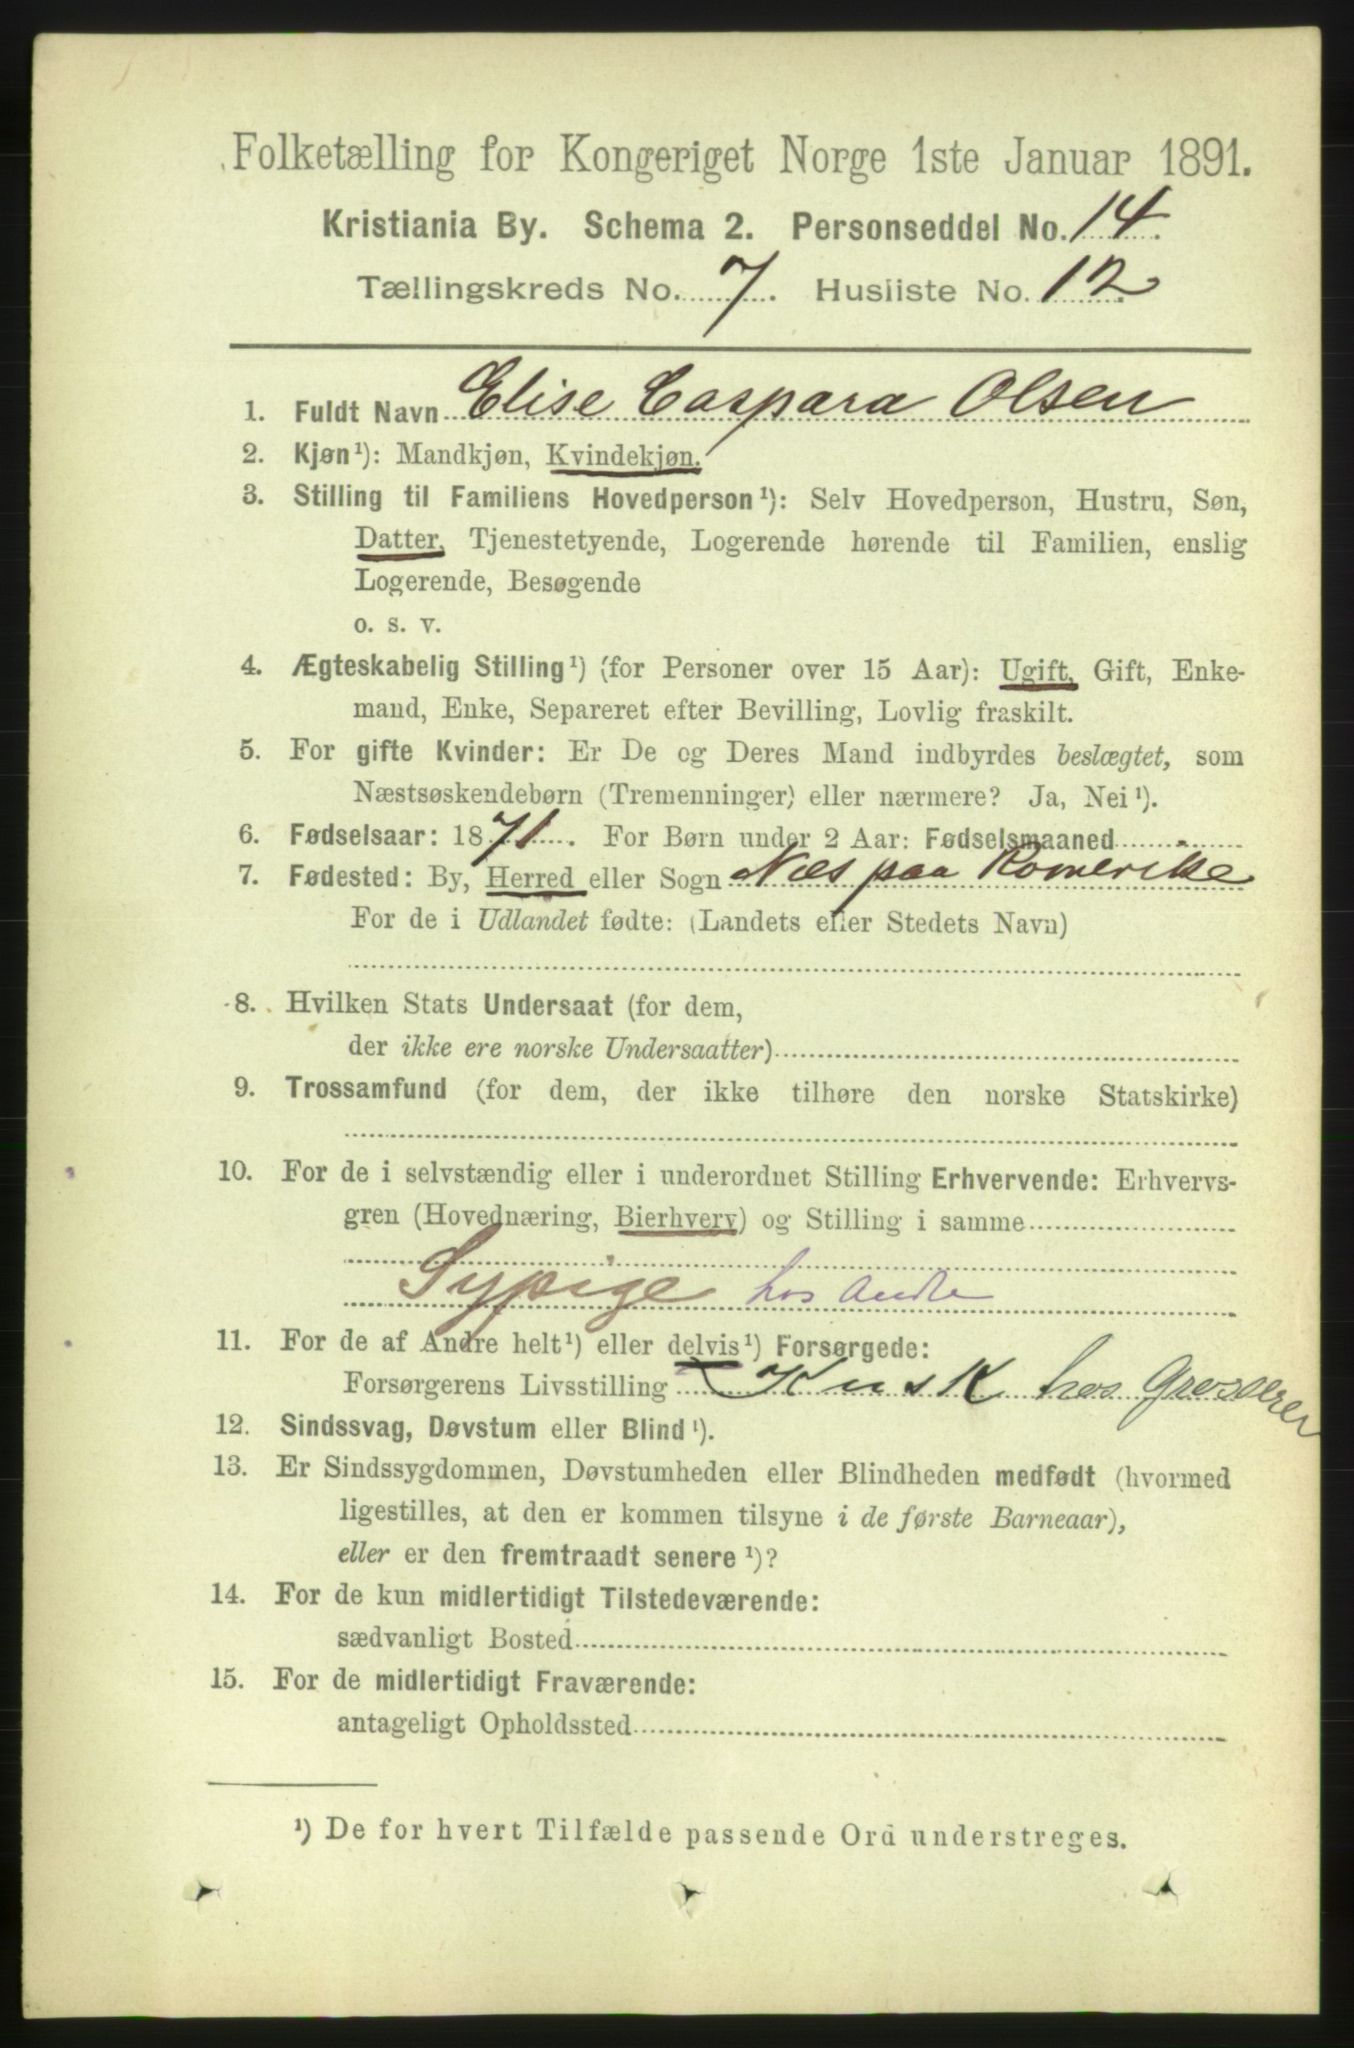 Folketælling for Kongeriget Norge 1ste Januar 1891.
Kristiania By. Schema 2. Personseddel No. 14.
Tællingskreds No. 7. Husliste No. 12.
1. Fuldt Navn Elise Caspara Olsen
2. Kjøn¹): Mandkjøn, Kvindekjøn.
3. Stilling til Familiens Hovedperson¹): Selv Hovedperson, Hustru, Søn,
Datter, Tjenestetyende, Logerende hørende til Familien, enslig
Logerende, Besøgende
o. s. v.
4. Ægteskabelig Stilling¹) (for Personer over 15 Aar): Ugift, Gift, Enke-
mand, Enke, Separeret efter Bevilling, Lovlig fraskilt.
5. For gifte Kvinder: Er De og Deres Mand indbyrdes beslægtet, som
Næstsøskendebørn (Tremenninger) eller nærmere? Ja, Nei¹).
6. Fødselsaar: 1871. For Børn under 2 Aar: Fødselsmaaned
7. Fødested: By, Herred eller Sogn Næs paa Romerike
For de i Udlandet fødte: (Landets eller Stedets Navn)
8. Hvilken Stats Undersaat (for dem,
der ikke ere norske Undersaatter)
9. Trossamfund (for dem, der ikke tilhøre den norske Statskirke)
10. For de i selvstændig eller i underordnet Stilling Erhvervende: Erhvervs-
gren (Hovednæring, Bierhverv) og Stilling i samme
Sypige hos Andre
11. For de af Andre helt¹) eller delvis¹) Forsørgede:
Forsørgerens Livsstilling Kusk hos Grosserer
12. Sindssvag, Døvstum eller Blind¹).
13. Er Sindssygdommen, Døvstumheden eller Blindheden medfødt (hvormed
ligestilles, at den er kommen tilsyne i de første Barneaar),
eller er den fremtraadt senere¹)?
14. For de kun midlertidigt Tilstedeværende:
sædvanligt Bosted
15. For de midlertidigt Fraværende:
antageligt Opholdssted
¹) De for hvert Tilfælde passende Ord understreges.